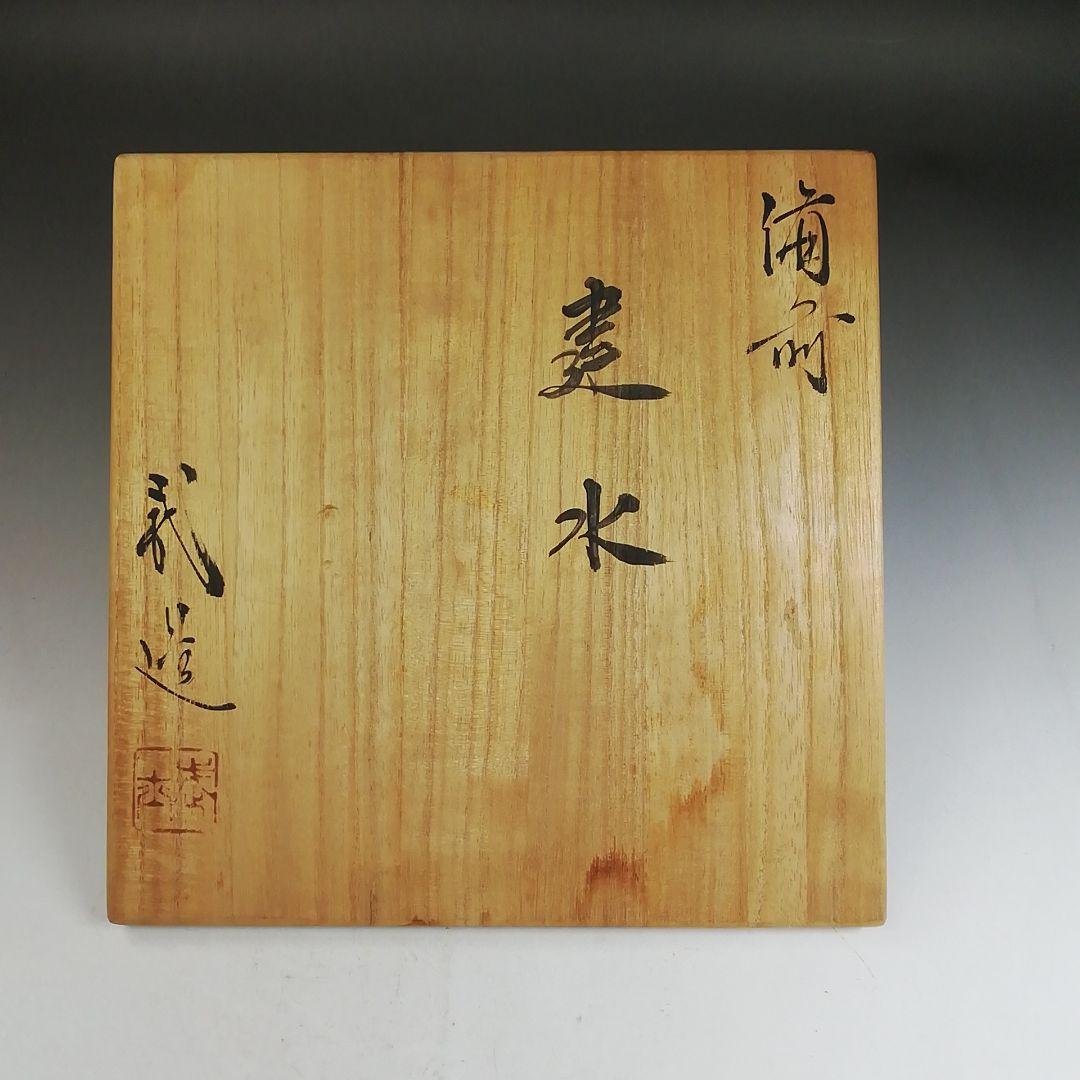 備前
建水
武造